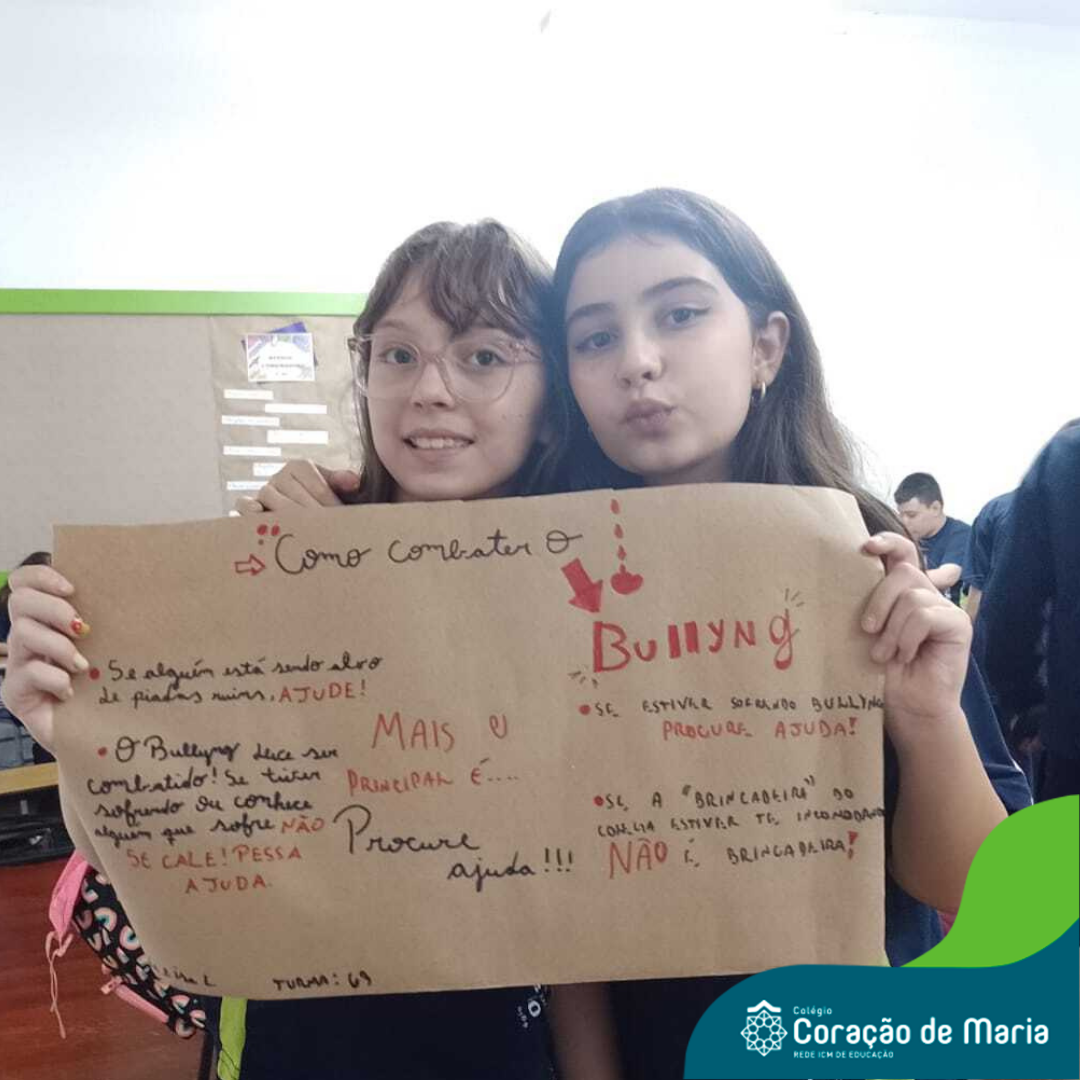 Como combater o
BullyNg
• Se alguém está sendo alvo
de piadas ruins, AJUDE!
• O Bullyng deve ser
combatido! Se tiver
sofrendo ou conhece
alguém que sofre NÃO
SE CALE! PESSA
AJUDA.
MAIS O
PRINCIPAL É....
Procure
ajuda!!!
• SE ESTIVER SOFRENDO BULLYNG
PROCURE AJUDA!
• SE A "BRINCADEIRA" DO
COLEGA ESTIVER TE INCOMODANDO
NÃO É BRINCADEIRA!
TURMA: 69
Colégio
Coração de Maria
REDE ICM DE EDUCAÇÃO